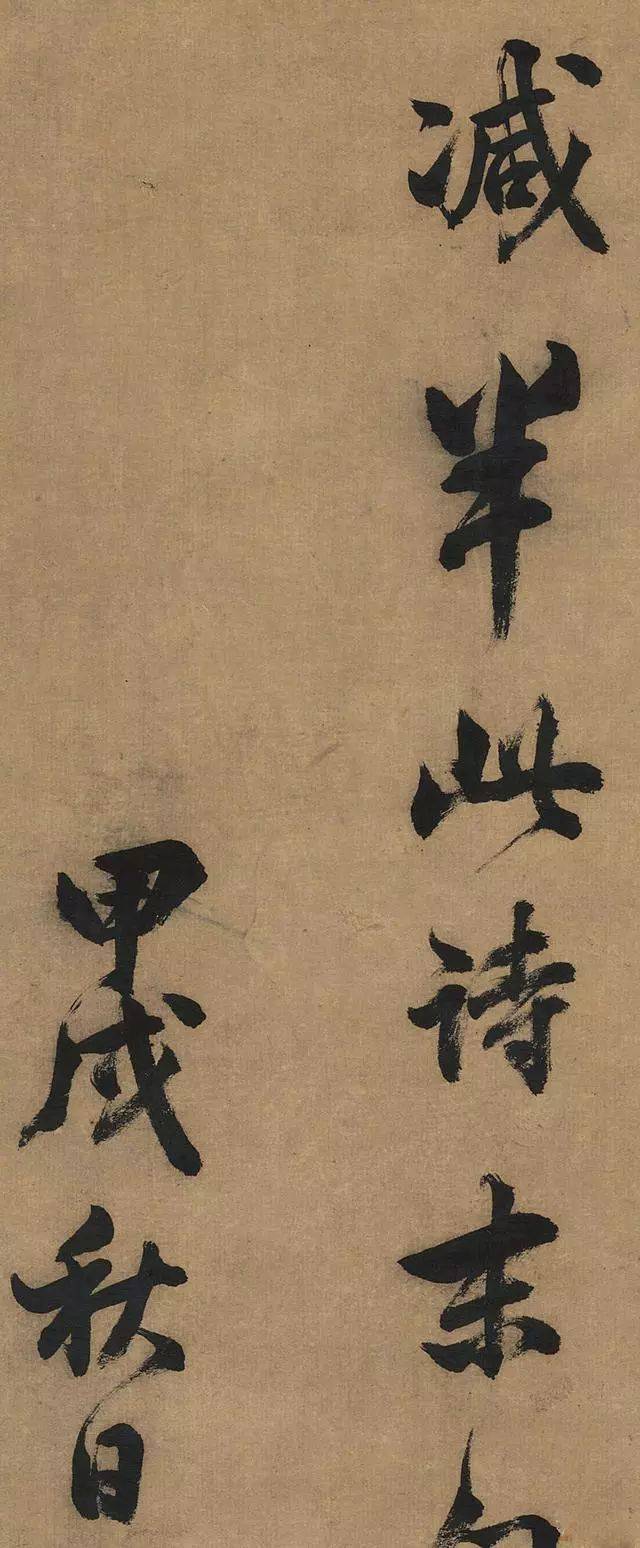 减半此诗末
甲戌秋日